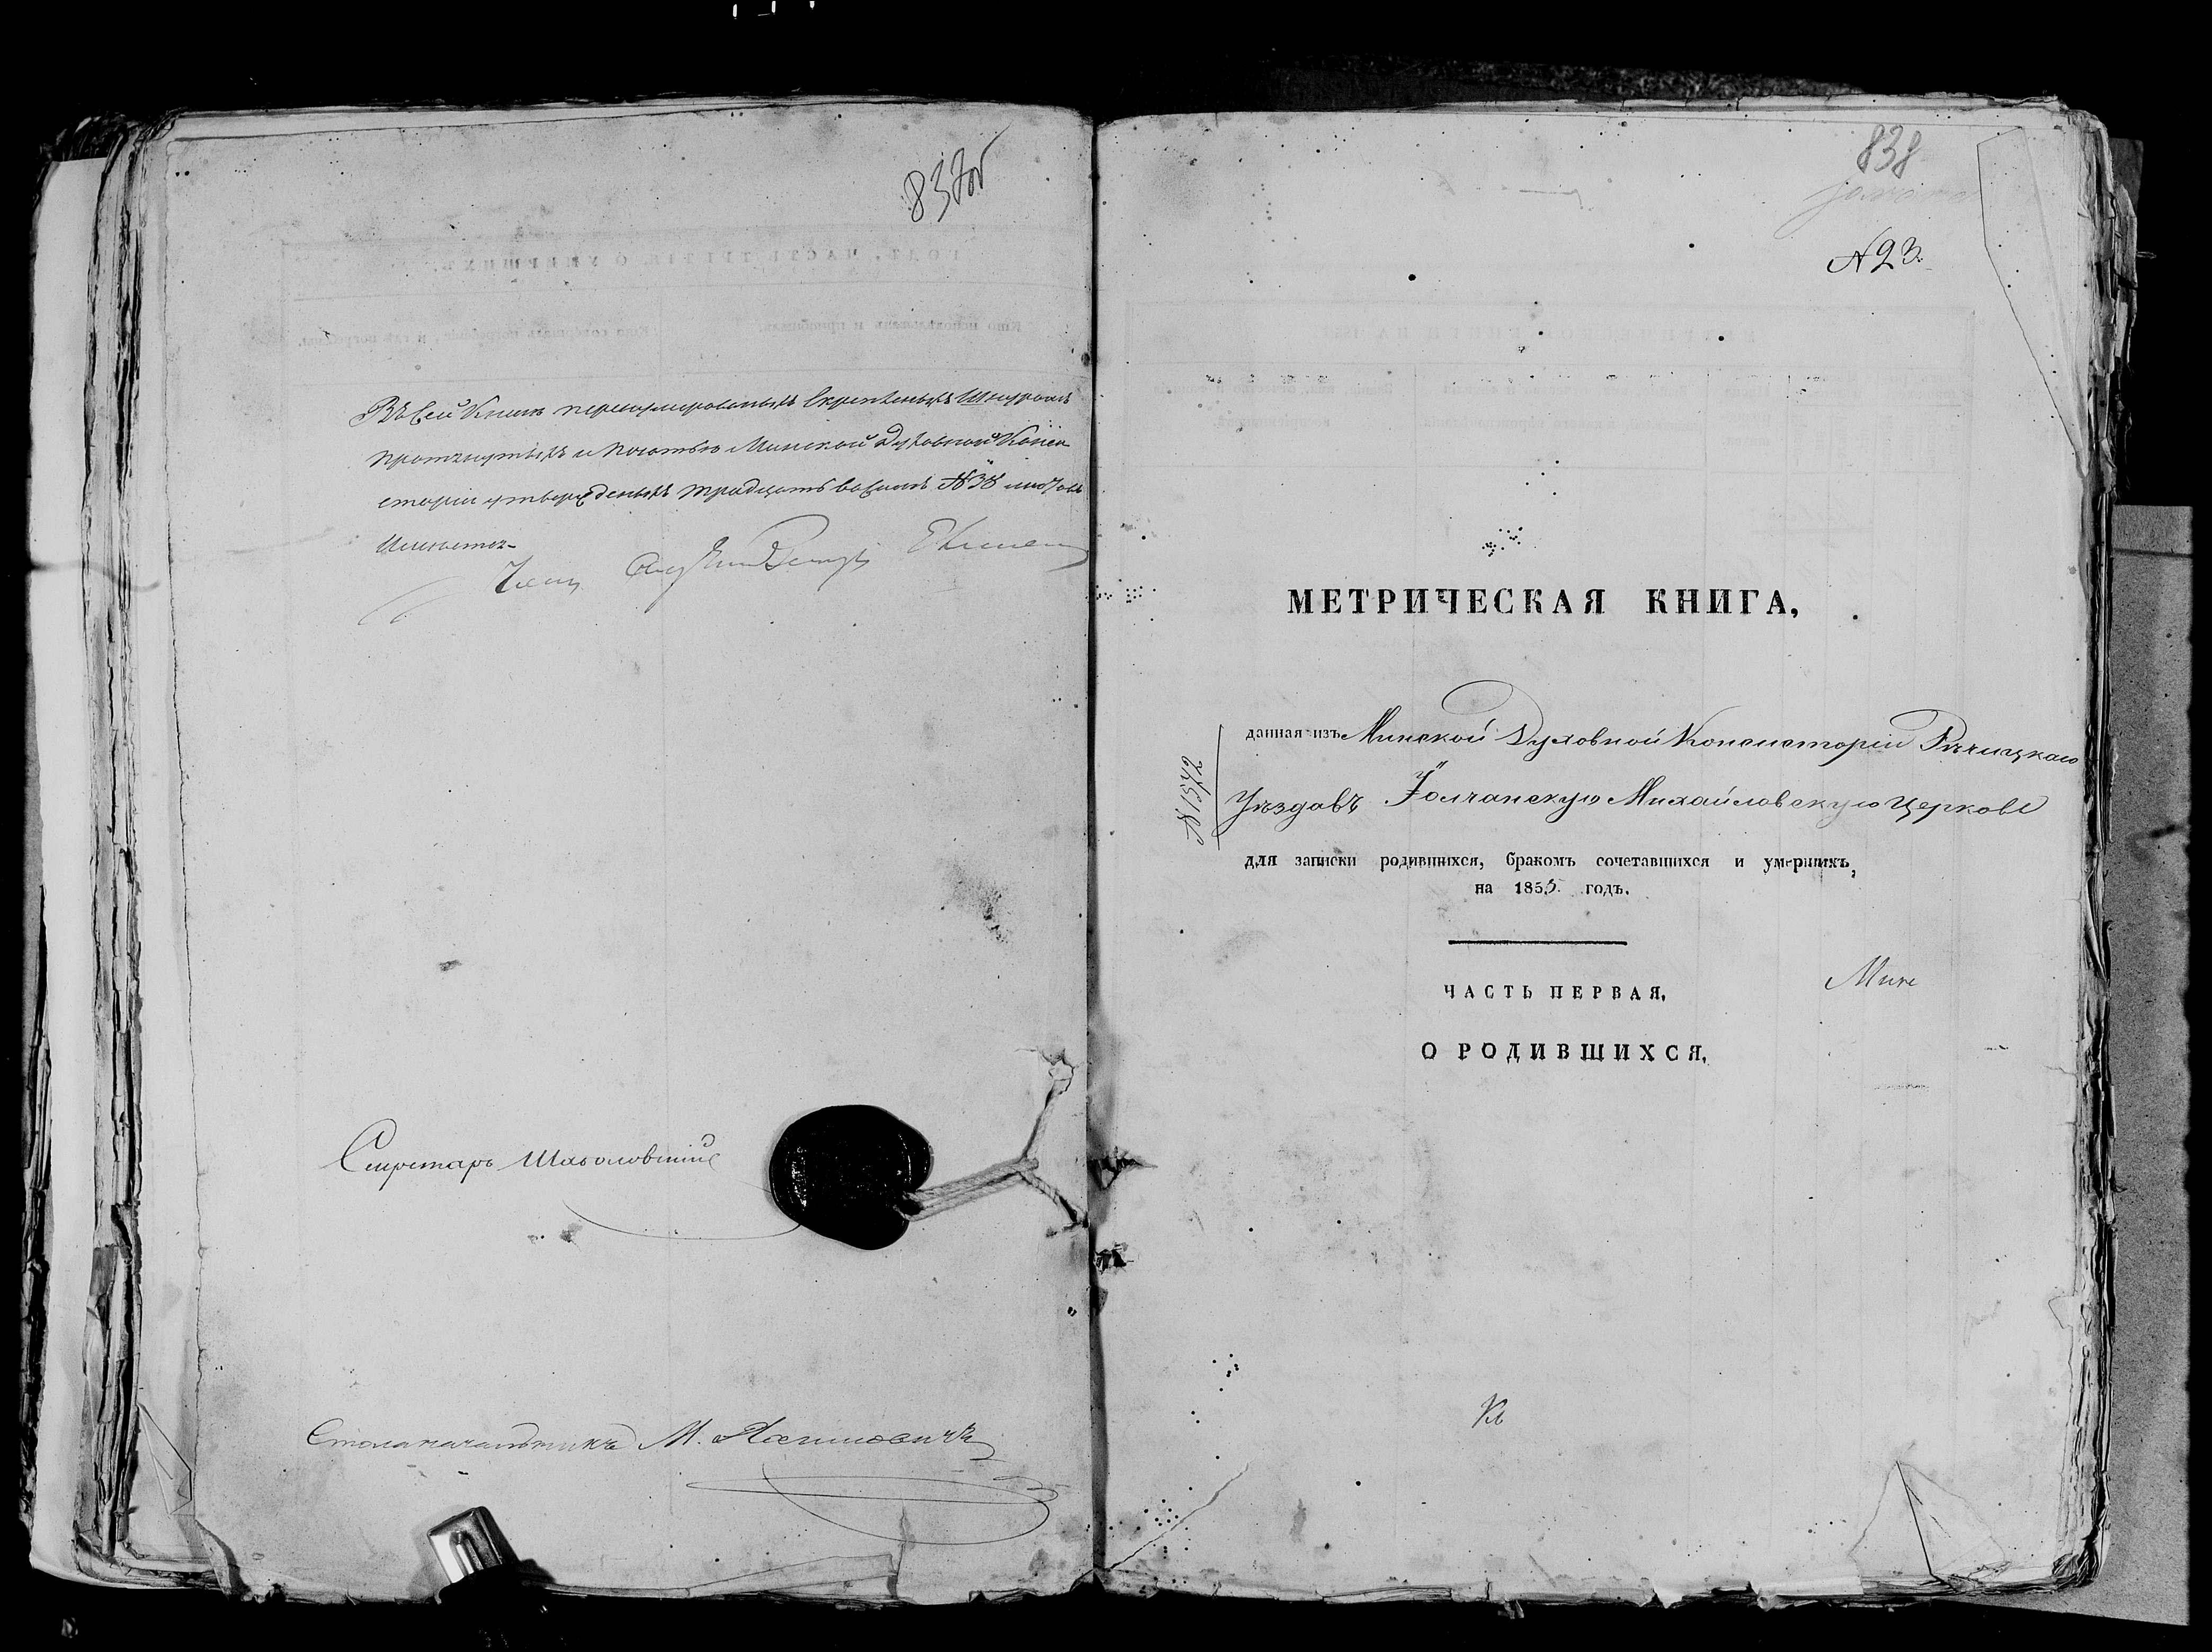 837об
Въ сей Книгѣ перенумерованыхъ скрепленыхъ Шнуромъ
протянутыхъ и печатью Минской Духовной Конси
сторіи утвержденыхъ тридцать восемь №38 листовъ
Имѣется
Членъ
Секретарь
Столоначальникъ М.
838
№23.
МЕТРИЧЕСКАЯ КНИГА,
данная изъ Минской Духовной Консисторіи Рѣчицкаго
Уѣзда въ Михайловскую церковь
№1572
для записки родившихся, бракомъ сочетавшихся и умершихъ,
на 1855. годъ.
ЧАСТЬ ПЕРВАЯ,
Мин
О РОДИВШИХСЯ,